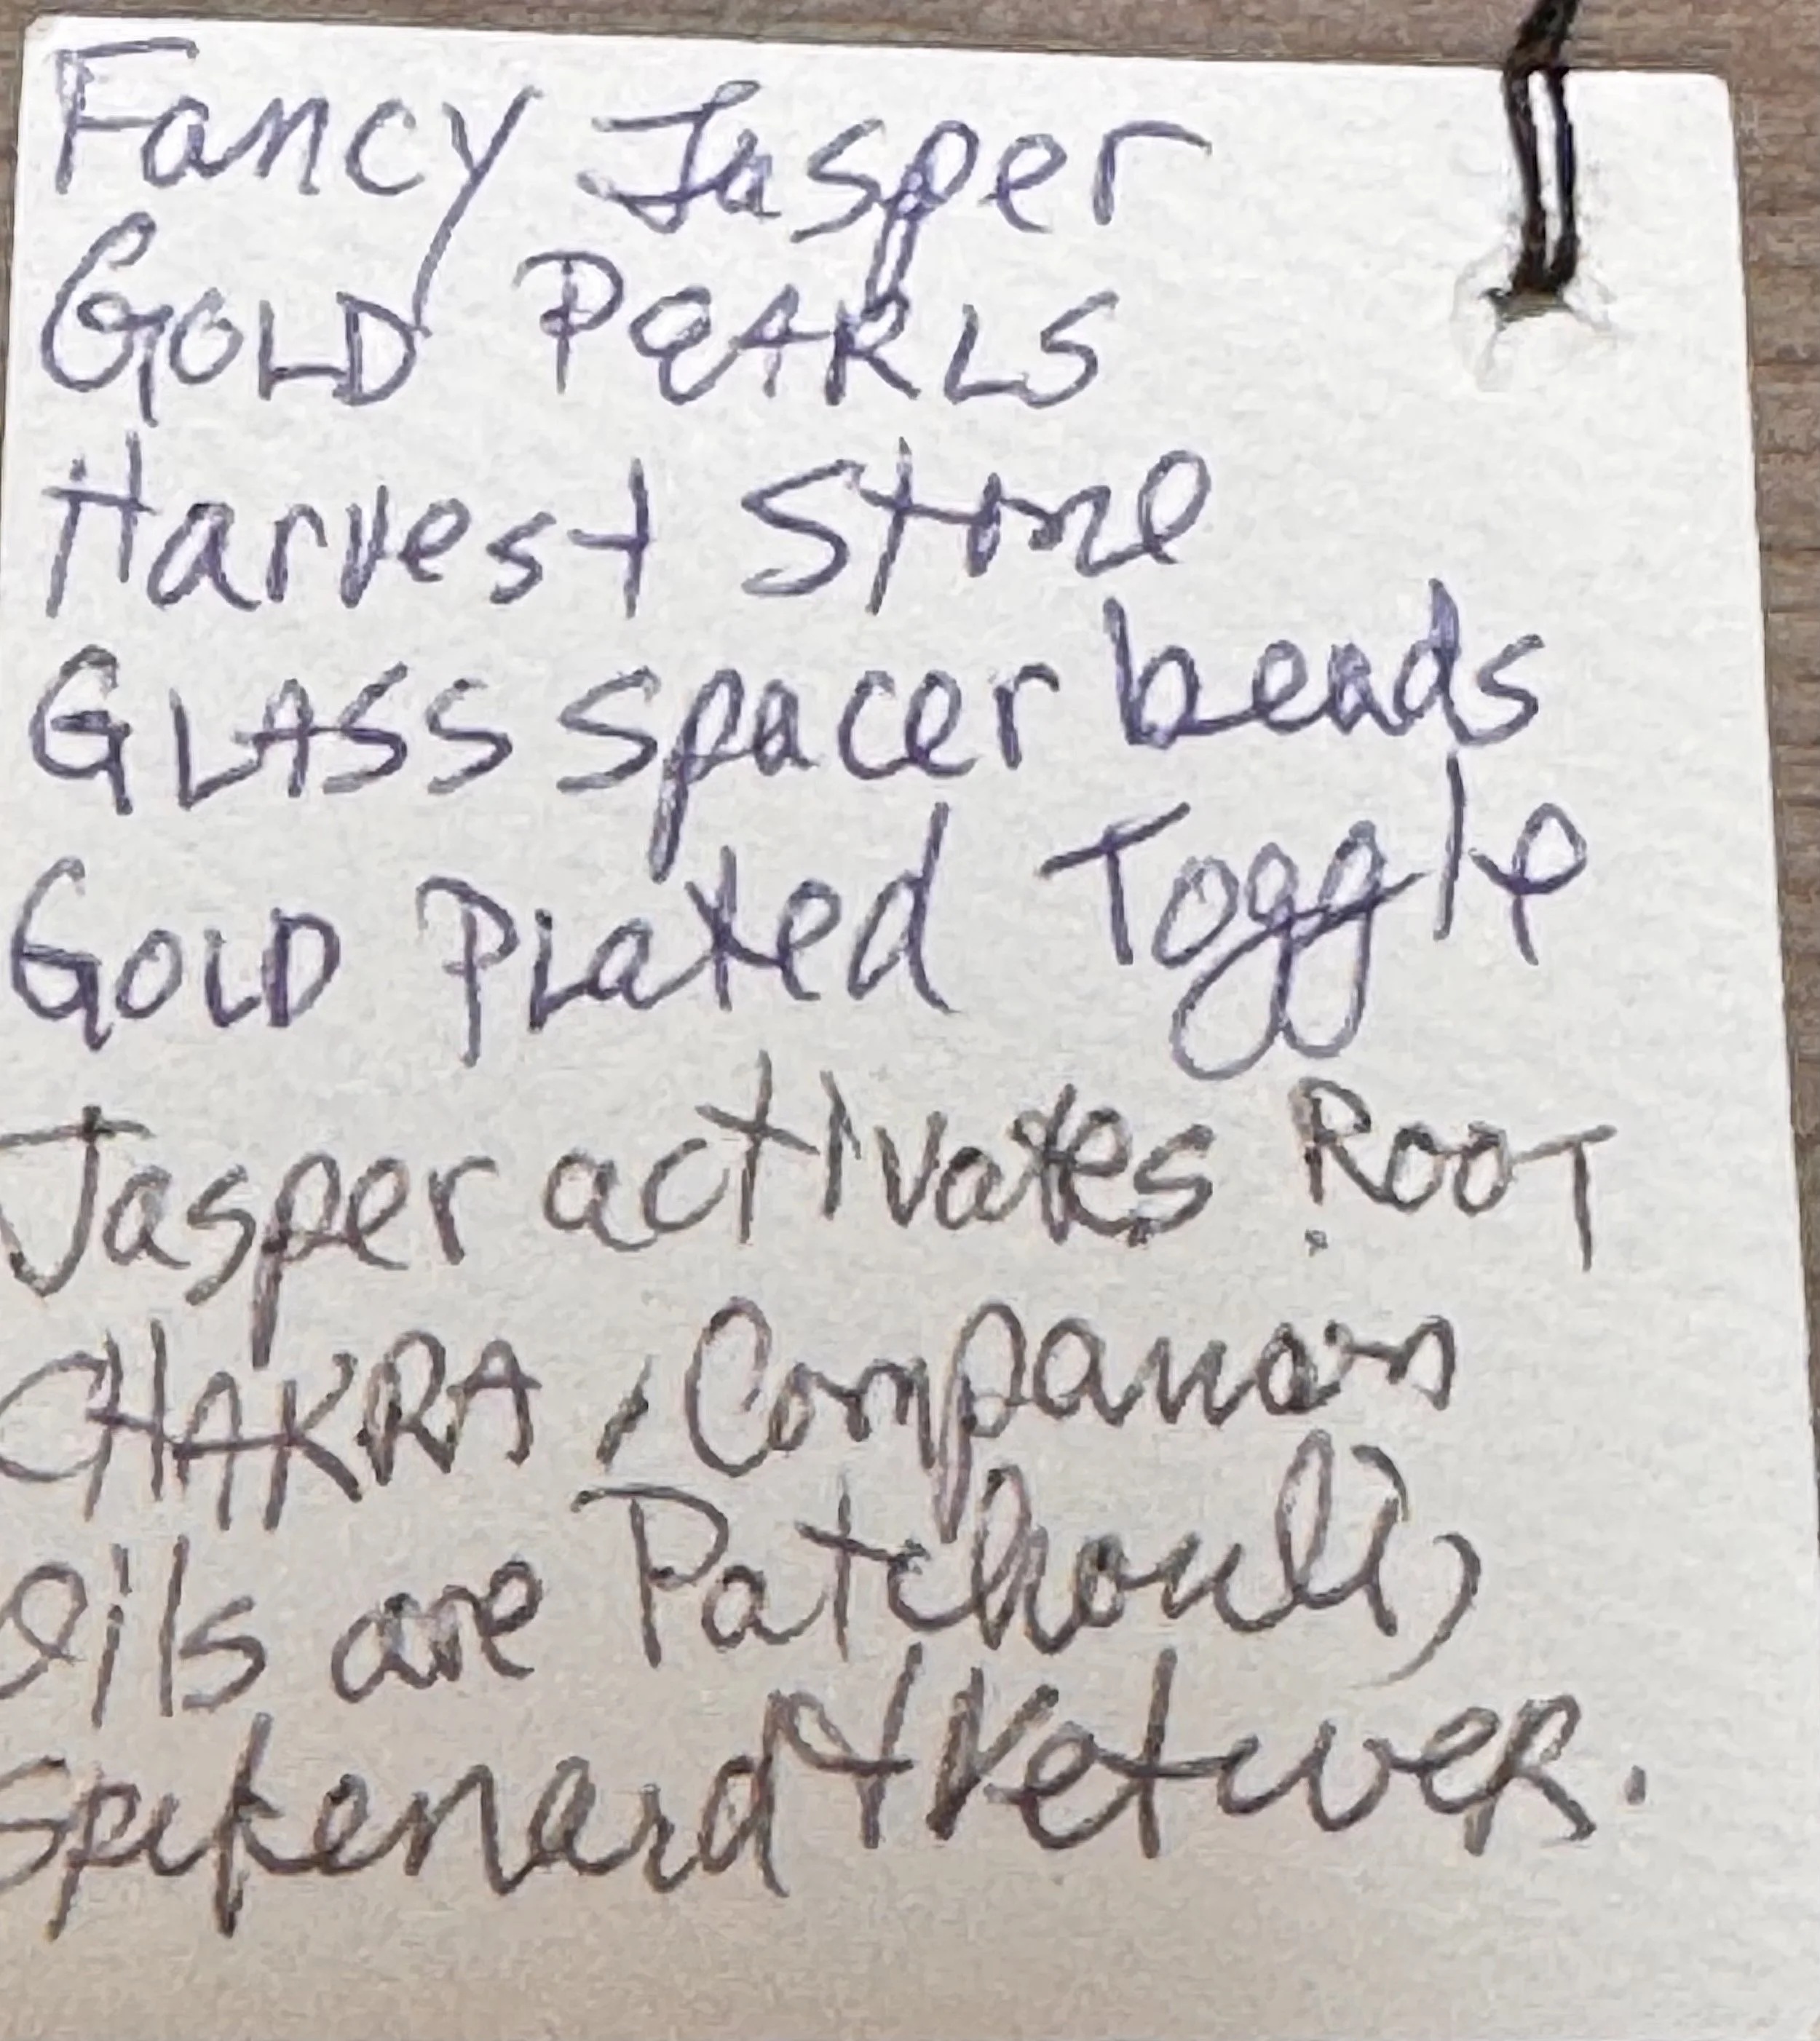 Fancy Jasper
GOLD PeARLS
Harvest Stone
GLASS spacer beads
GOLD Plated Toggle
Jasper activates ROOT
CHAKRA, Companion
oils are Patchouli,
Spikenard + VetiveR.